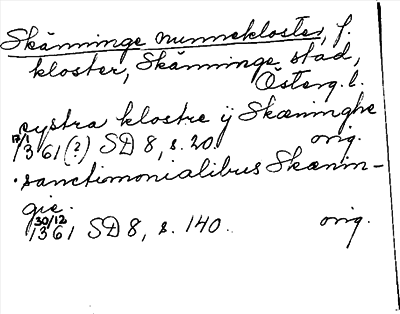 Skänninge nunnekloster, f.
kloster, Skänninge stad,
Österg. l.
systra klostre ÿ Skæninghe
17/1 1361 (?) SD 8, s. 20. orig.
sanctimonialibus Skænin-
gie.
30/12 1361 SD 8, s. 140. orig.